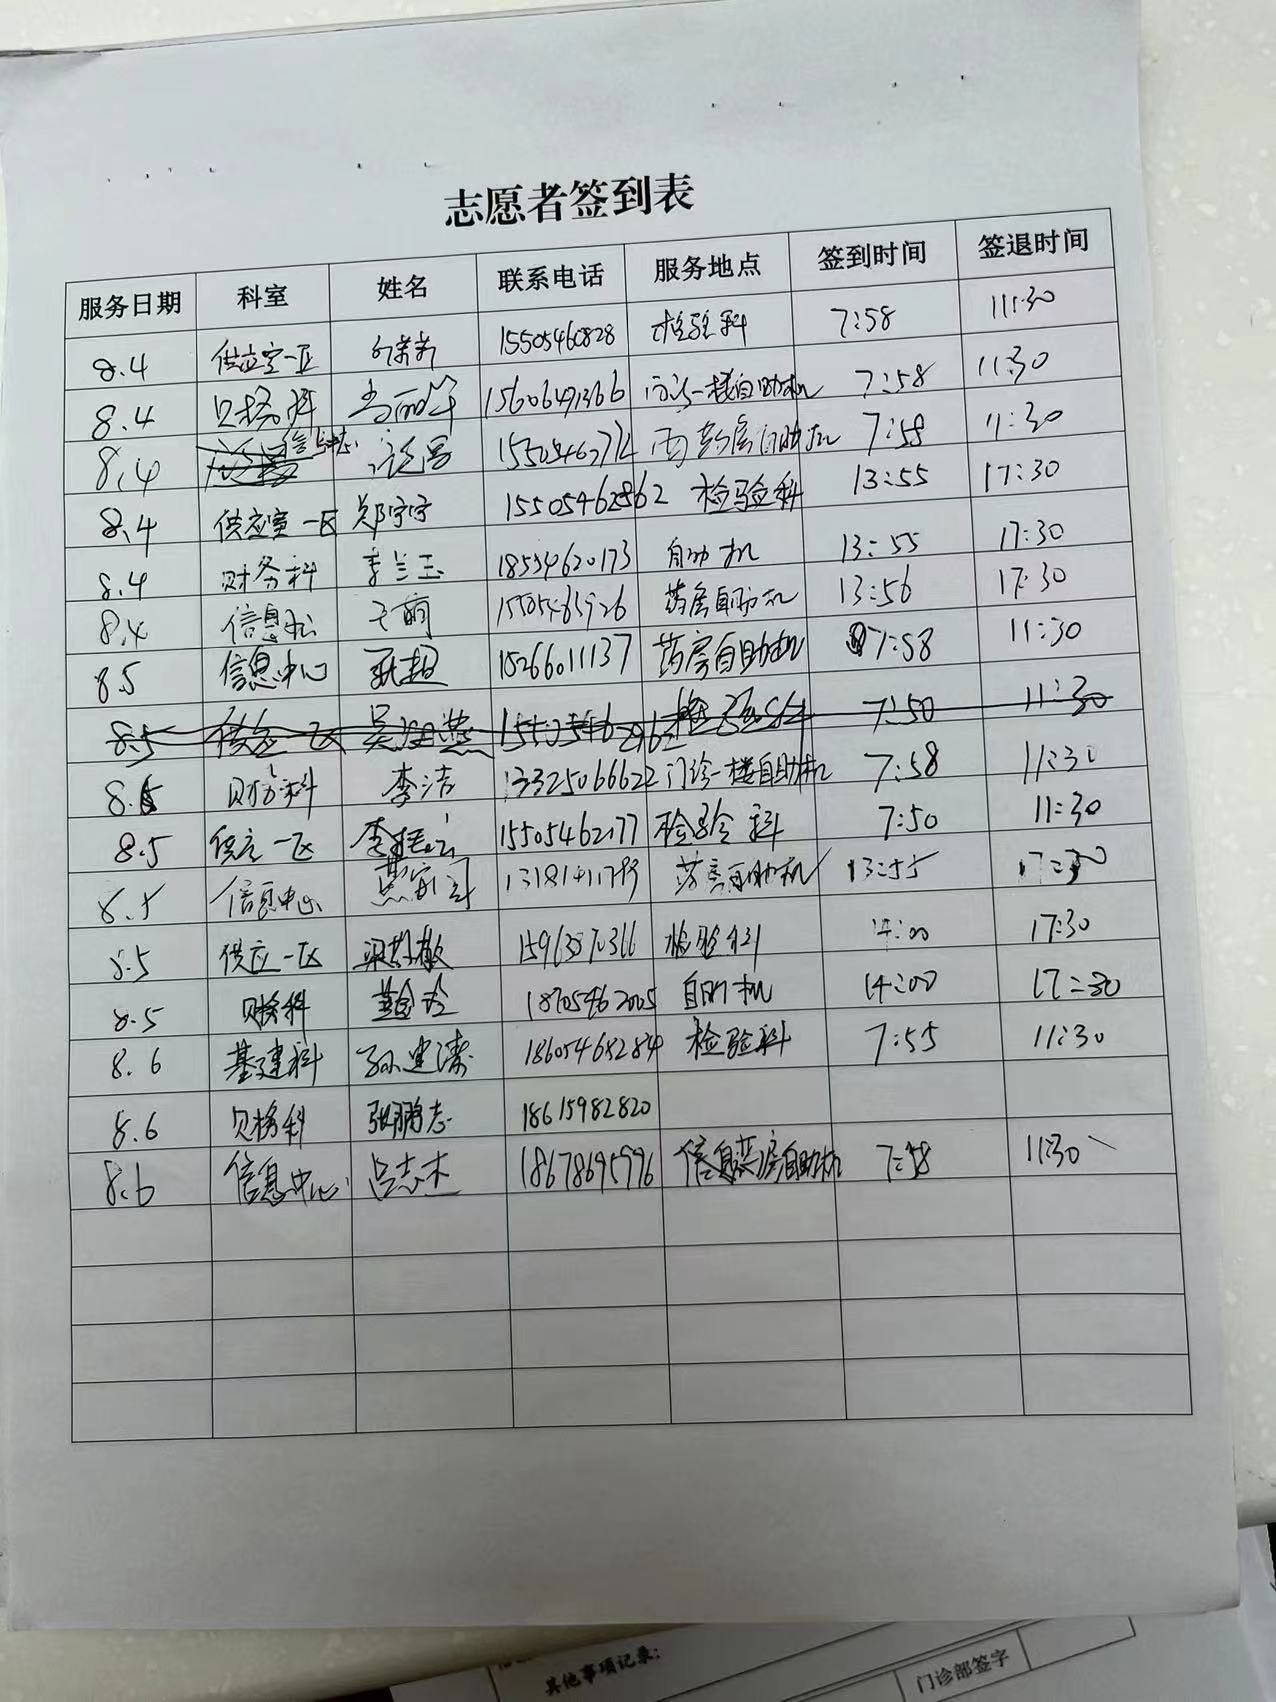 志愿者签到表
服务日期 科室 姓名 联系电话 服务地点 签到时间 签退时间
8.4 供应室一区 15505460828 检验科 7:58 11:30
8.4 财务科 15606491366 门诊一楼自助机 7:58 11:30
8.4 信息中心 西药房自助机 7:58 11:30
8.4 供应室一区 郑宇宇 15505462862 检验科 13:55 17:30
8.4 财务科 李兰玉 18554620173 自助机 13:55 17:30
8.4 信息 药房自助机 13:56 17:30
8.5 信息中心 耿超 15266011137 药房自助机 7:58 11:30
8.5 供应一区 检验科 7:50 11:30
8.5 财务科 李洁 13325066622 门诊一楼自助机 7:58 11:30
8.5 供应一区 15505462177 检验科 7:50 11:30
8.5 信息中心 药房自助机 13:55 17:30
8.5 供应一区 梁 敏 15963870366 检验科 14:00 17:30
8.5 财务科 18705462005 自助机 14:00 17:30
8.6 基建科 孙建涛 18605468284 检验科 7:55 11:30
8.6 财务科 张鹏志 18615982820
8.6 信息中心 吕志杰 18678695996 信息药房自助机 7:58 11:30
其他事项记录：
门诊部签字